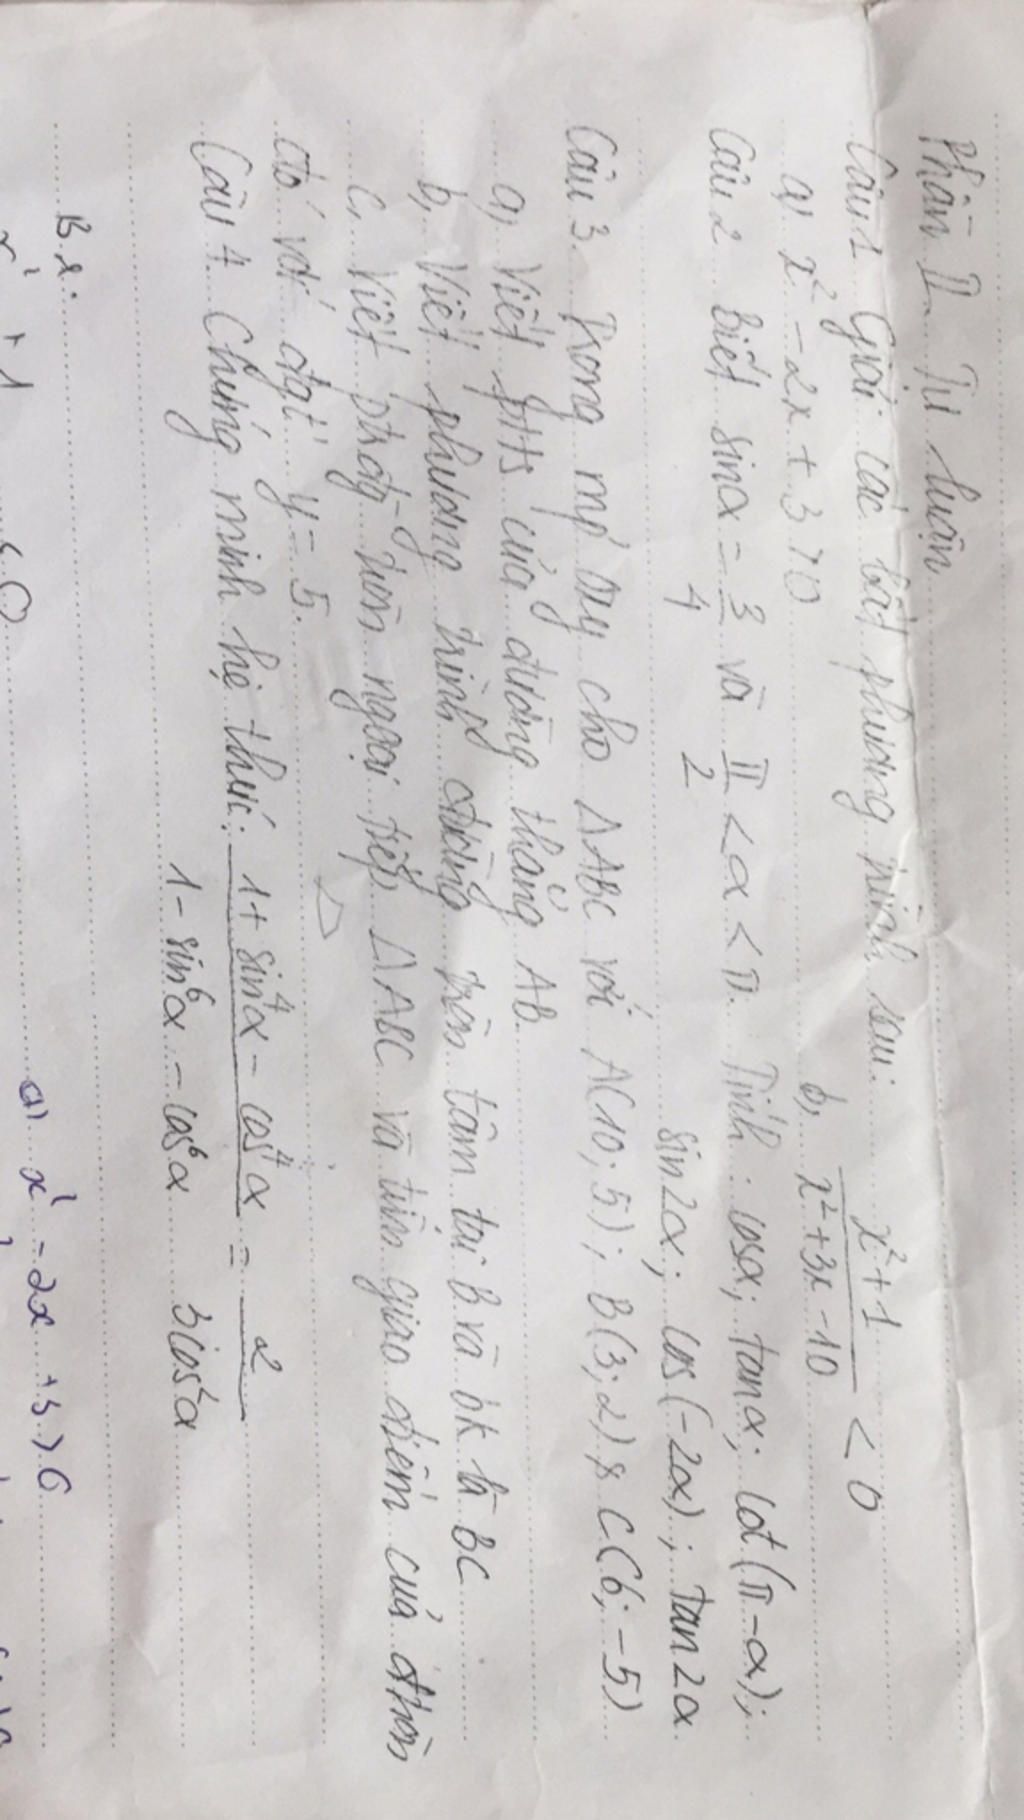 Phần II. Tự luận
Câu 1 Giải các bất phương trình sau:
a) x² - 2x + 3 > 0 b, (x² + 1)/(x² + 3x - 10) < 0
Câu 2 Biết sinα = 3/4 và π/2 < α < π. Tính: cosα; tanα; cot(π-α);
sin2α; cos(-2α); tan2α
Câu 3. Trong mp Oxy cho ΔABC với A(10; 5); B(3; 2) & C(6; -5)
a, Viết ptts của đường thẳng AB.
b, Viết phương trình đường tròn tâm tại B và bk là BC
c, Viết ptrđg tròn ngoại tiếp ΔABC và tìm giao điểm của đtròn
đó với đgt y = 5.
Câu 4 Chứng minh hệ thức: (1 + sin⁴α - cos⁴α)/(1 - sin⁶α - cos⁶α) = 2/(3cos²α)
a) x² - 2x + 3 >